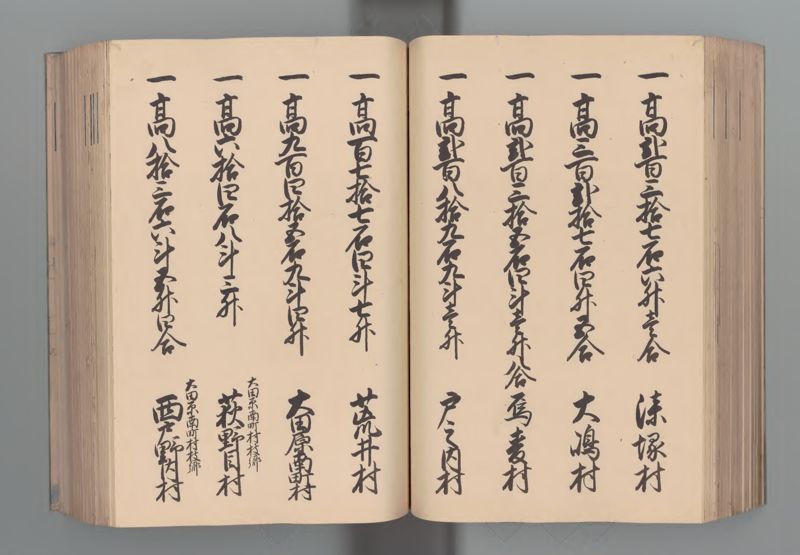 一高弐百三拾七石六升壱合 漆塚村
一高三百弐拾七石四升五合 大嶋村
一高弐百三拾五石四斗壱升八合
一高弐百八拾九石九斗壱升 戸之内村
一高百七拾七石四斗七升 荒井村
一高九百四拾五石九斗四升 大田原南町村
大田原南町村枝郷
一高六拾四石八斗三升 萩野目村
大田原南町村枝郷
一高八拾三石六斗五升四合 西戸野内村